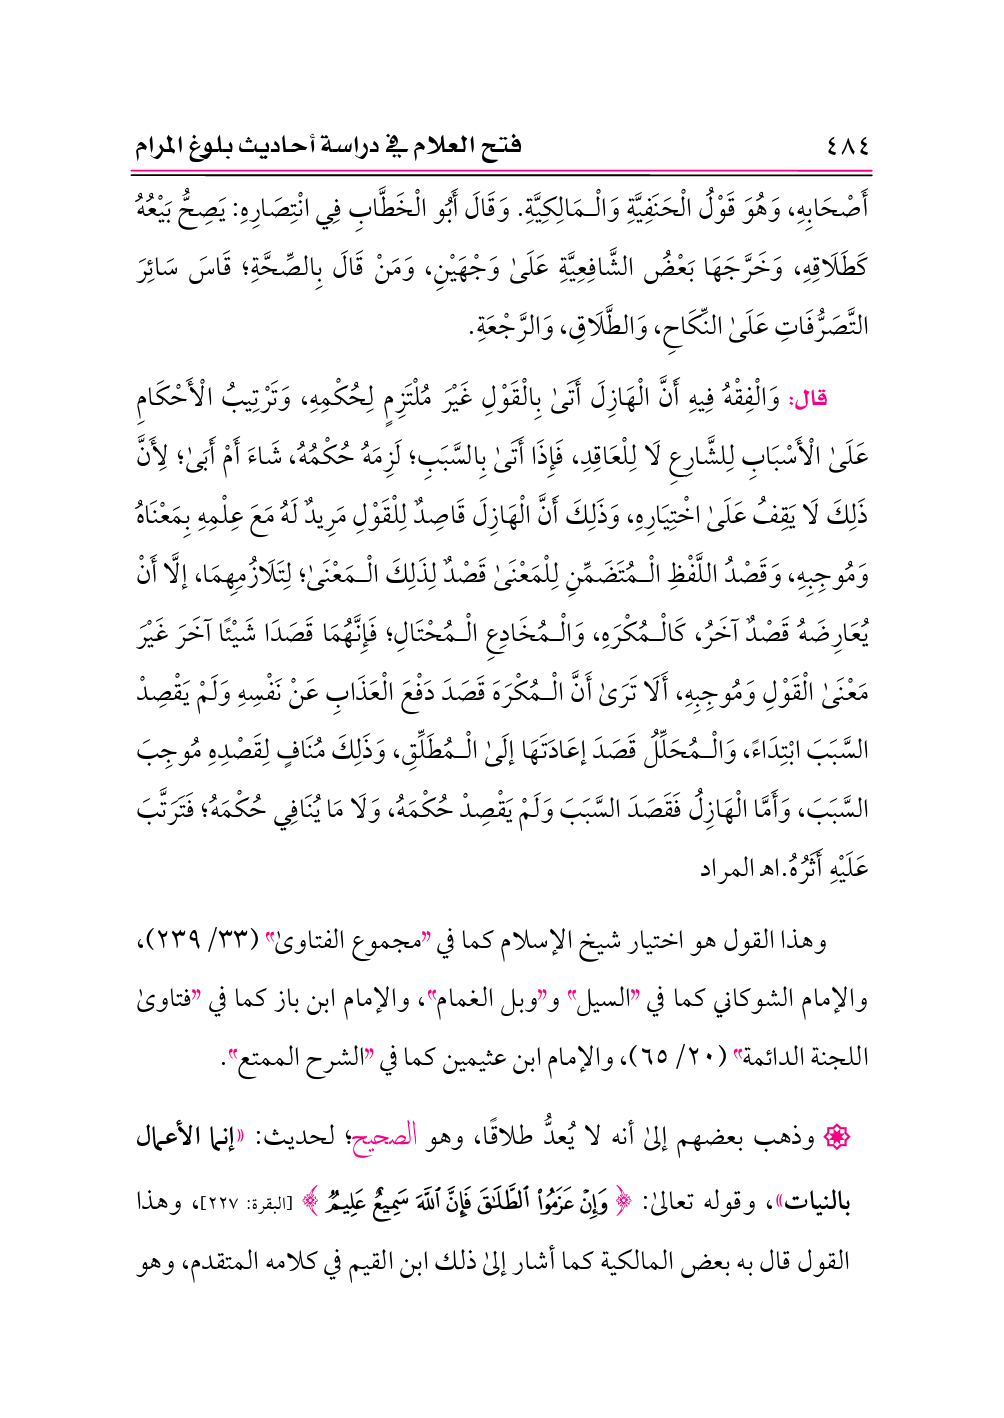 ٤٨٤ فتح العلام في دراسة أحاديث بلوغ المرام
أَصْحَابِهِ، وَهُوَ قَوْلُ الْحَنَفِيَّةِ وَالْـمَالِكِيَّةِ. وَقَالَ أَبُو الْخَطَّابِ فِي انْتِصَارِهِ: يَصِحُّ بَيْعُهُ
كَطَلَاقِهِ، وَخَرَّجَهَا بَعْضُ الشَّافِعِيَّةِ عَلَىٰ وَجْهَيْنِ، وَمَنْ قَالَ بِالصِّحَّةِ؛ قَاسَ سَائِرَ
التَّصَرُّفَاتِ عَلَىٰ النِّكَاحِ، وَالطَّلَاقِ، وَالرَّجْعَةِ.
قال: وَالْفِقْهُ فِيهِ أَنَّ الْهَازِلَ أَتَىٰ بِالْقَوْلِ غَيْرَ مُلْتَزِمٍ لِحُكْمِهِ، وَتَرْتِيبُ الْأَحْكَامِ
عَلَىٰ الْأَسْبَابِ لِلشَّارِعِ لَا لِلْعَاقِدِ، فَإِذَا أَتَىٰ بِالسَّبَبِ؛ لَزِمَهُ حُكْمُهُ، شَاءَ أَمْ أَبَىٰ؛ لِأَنَّ
ذَلِكَ لَا يَقِفُ عَلَىٰ اخْتِيَارِهِ، وَذَلِكَ أَنَّ الْهَازِلَ قَاصِدٌ لِلْقَوْلِ مَرِيدٌ لَهُ مَعَ عِلْمِهِ بِمَعْنَاهُ
وَمُوجِبِهِ، وَقَصْدُ اللَّفْظِ الْـمُتَضَمِّنِ لِلْمَعْنَىٰ قَصْدٌ لِذَلِكَ الْـمَعْنَىٰ؛ لِتَلَازُمِهِمَا، إلَّا أَنْ
يُعَارِضَهُ قَصْدٌ آخَرُ، كَالْـمُكْرَهِ، وَالْـمُخَادِعِ الْـمُحْتَالِ؛ فَإِنَّهُمَا قَصَدَا شَيْئًا آخَرَ غَيْرَ
مَعْنَىٰ الْقَوْلِ وَمُوجِبِهِ، أَلَا تَرَىٰ أَنَّ الْـمُكْرَهَ قَصَدَ دَفْعَ الْعَذَابِ عَنْ نَفْسِهِ وَلَمْ يَقْصِدْ
السَّبَبَ ابْتِدَاءً، وَالْـمُحَلِّلُ قَصَدَ إعَادَتَهَا إلَىٰ الْـمُطَلِّقِ، وَذَلِكَ مُنَافٍ لِقَصْدِهِ مُوجِبَ
السَّبَبَ، وَأَمَّا الْهَازِلُ فَقَصَدَ السَّبَبَ وَلَمْ يَقْصِدْ حُكْمَهُ، وَلَا مَا يُنَافِي حُكْمَهُ؛ فَتَرَتَّبَ
عَلَيْهِ أَثَرُهُ.اهـ المراد
وهذا القول هو اختيار شيخ الإسلام كما في "مجموع الفتاوىٰ" (٣٣/ ٢٣٩)،
والإمام الشوكاني كما في "السيل" و"وبل الغمام"، والإمام ابن باز كما في "فتاوىٰ
اللجنة الدائمة" (٢٠/ ٦٥)، والإمام ابن عثيمين كما في "الشرح الممتع".
وذهب بعضهم إلىٰ أنه لا يُعدُّ طلاقًا، وهو الصحيح؛ لحديث: «إنما الأعمال
بالنيات»، وقوله تعالىٰ: ﴿ وَإِنْ عَزَمُوا۟ ٱلطَّلَـٰقَ فَإِنَّ ٱللَّهَ سَمِيعٌ عَلِيمٌ ﴾ [البقرة: ٢٢٧]، وهذا
القول قال به بعض المالكية كما أشار إلىٰ ذلك ابن القيم في كلامه المتقدم، وهو